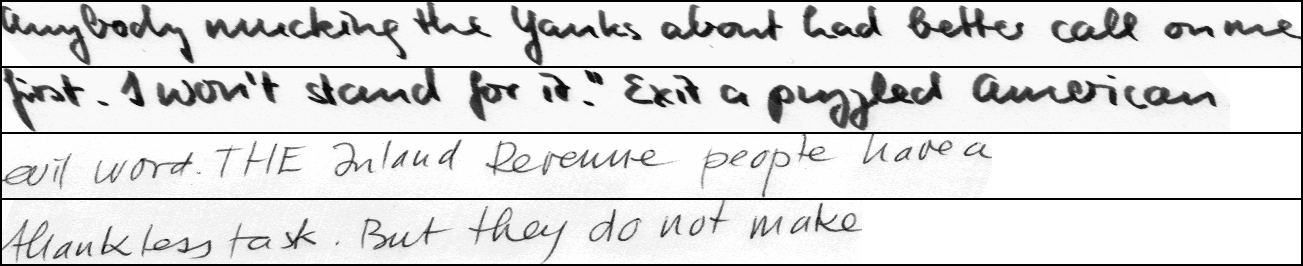 Anybody mucking the Yanks about had better call on me
first. I won't stand for it." Exit a puzzled American
evil word. THE Inland Revenue people have a
thankless task. But they do not make